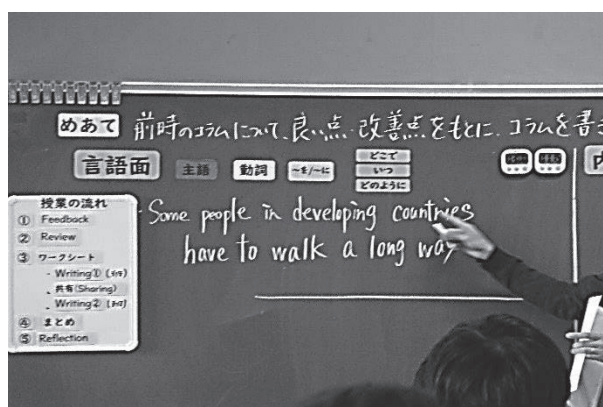 めあて 前時のコラムについて、良い点・改善点をもとに、コラムを書き
言語面 主語 動詞 ～を/～に どこで いつ どのように
内
授業の流れ
① Feedback
② Review
③ ワークシート
・Writing①
・共有(Sharing)
・Writing②
④ まとめ
⑤ Reflection
・Some people in developing countries
have to walk a long way